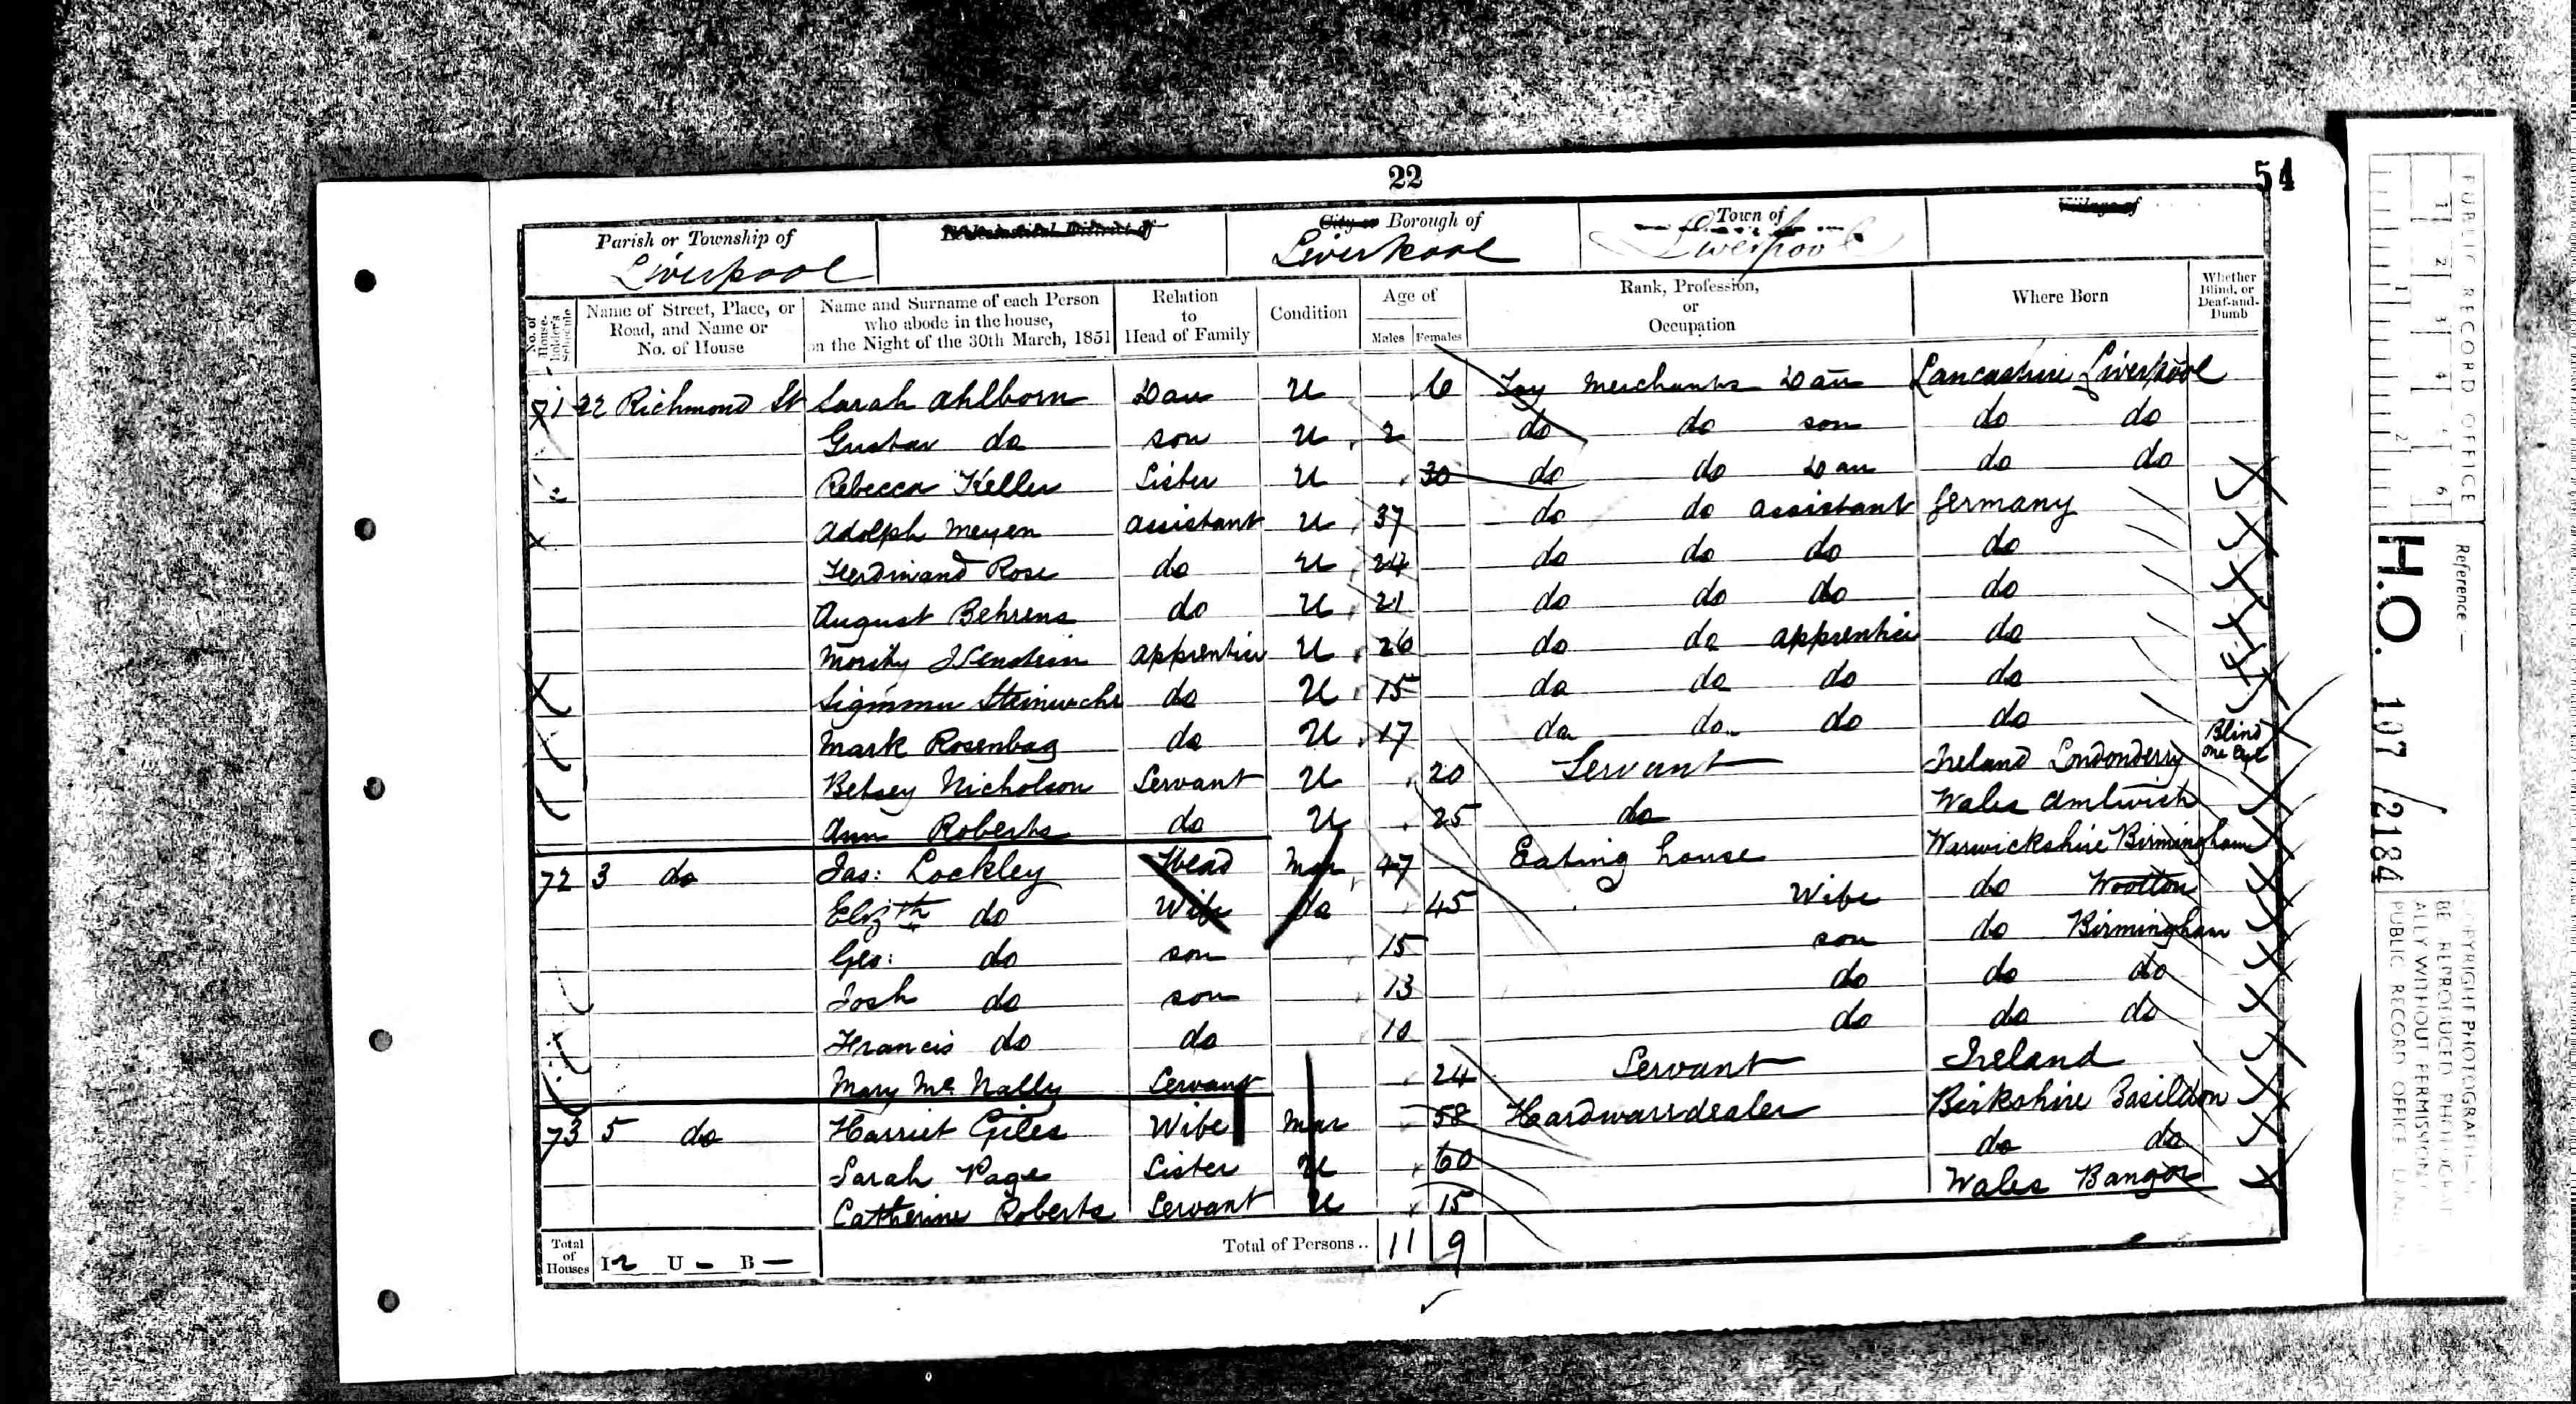 22
54
Parish or Township of
Liverpool
Ecclesiastical District of
City or Borough of
Liverpool
Town of
Liverpool
Village of
No. of House-holder's Schedule
Name of Street, Place, or Road, and Name or No. of House
Name and Surname of each Person who abode in the house, on the Night of the 30th March, 1851
Relation to Head of Family
Condition
Age of
Males
Females
Rank, Profession, or Occupation
Where Born
Whether Blind, or Deaf-and-Dumb
71 22 Richmond St Sarah Ahlborn Dau U 6 Toy Merchants Dau Lancashire Liverpool
Gustav do son U 2 do do son do do
Rebecca Keller Sister U 30 do do Dau do do
Adolph Meyen assistant U 37 do do assistant Germany
Ferdinand Rose do U 24 do do do do
August Behrens do U 21 do do do do
Apprentice U 26 do do apprentice do
do U 15 do do do do
Mark Rosenbag do U 17 do do do do
Betsey Nicholson Servant U 20 Servant Ireland Londonderry Blind One Eye
Ann Roberts do U 25 do Wales Amlwich
72 3 do Jas: Lockley Head Mar 47 Eating house Warwickshire Birmingham
Elizth do Wife do 45 Wife do Wootton
Geo: do son 15 son do Birmingham
Josh do son 13 do do do
Francis do do 10 do do do
Mary Mc Nally Servant 24 Servant Ireland
73 5 do Harriet Giles Wife Mar 58 Hardwaredealer Birkshire Basildon
Sarah Page Sister U 60 do do
Catherine Roberts Servant U 15 Wales Bangor
Total of Houses I 2 U - B -
Total of Persons.. 11 9
PUBLIC RECORD OFFICE
1 2 3 4 5 6
1 2
Reference —
H.O. 107/2184
COPYRIGHT PHOTOGRAPH
BE REPRODUCED PHOTOGRAPHIC
ALLY WITHOUT PERMISSION
PUBLIC RECORD OFFICE